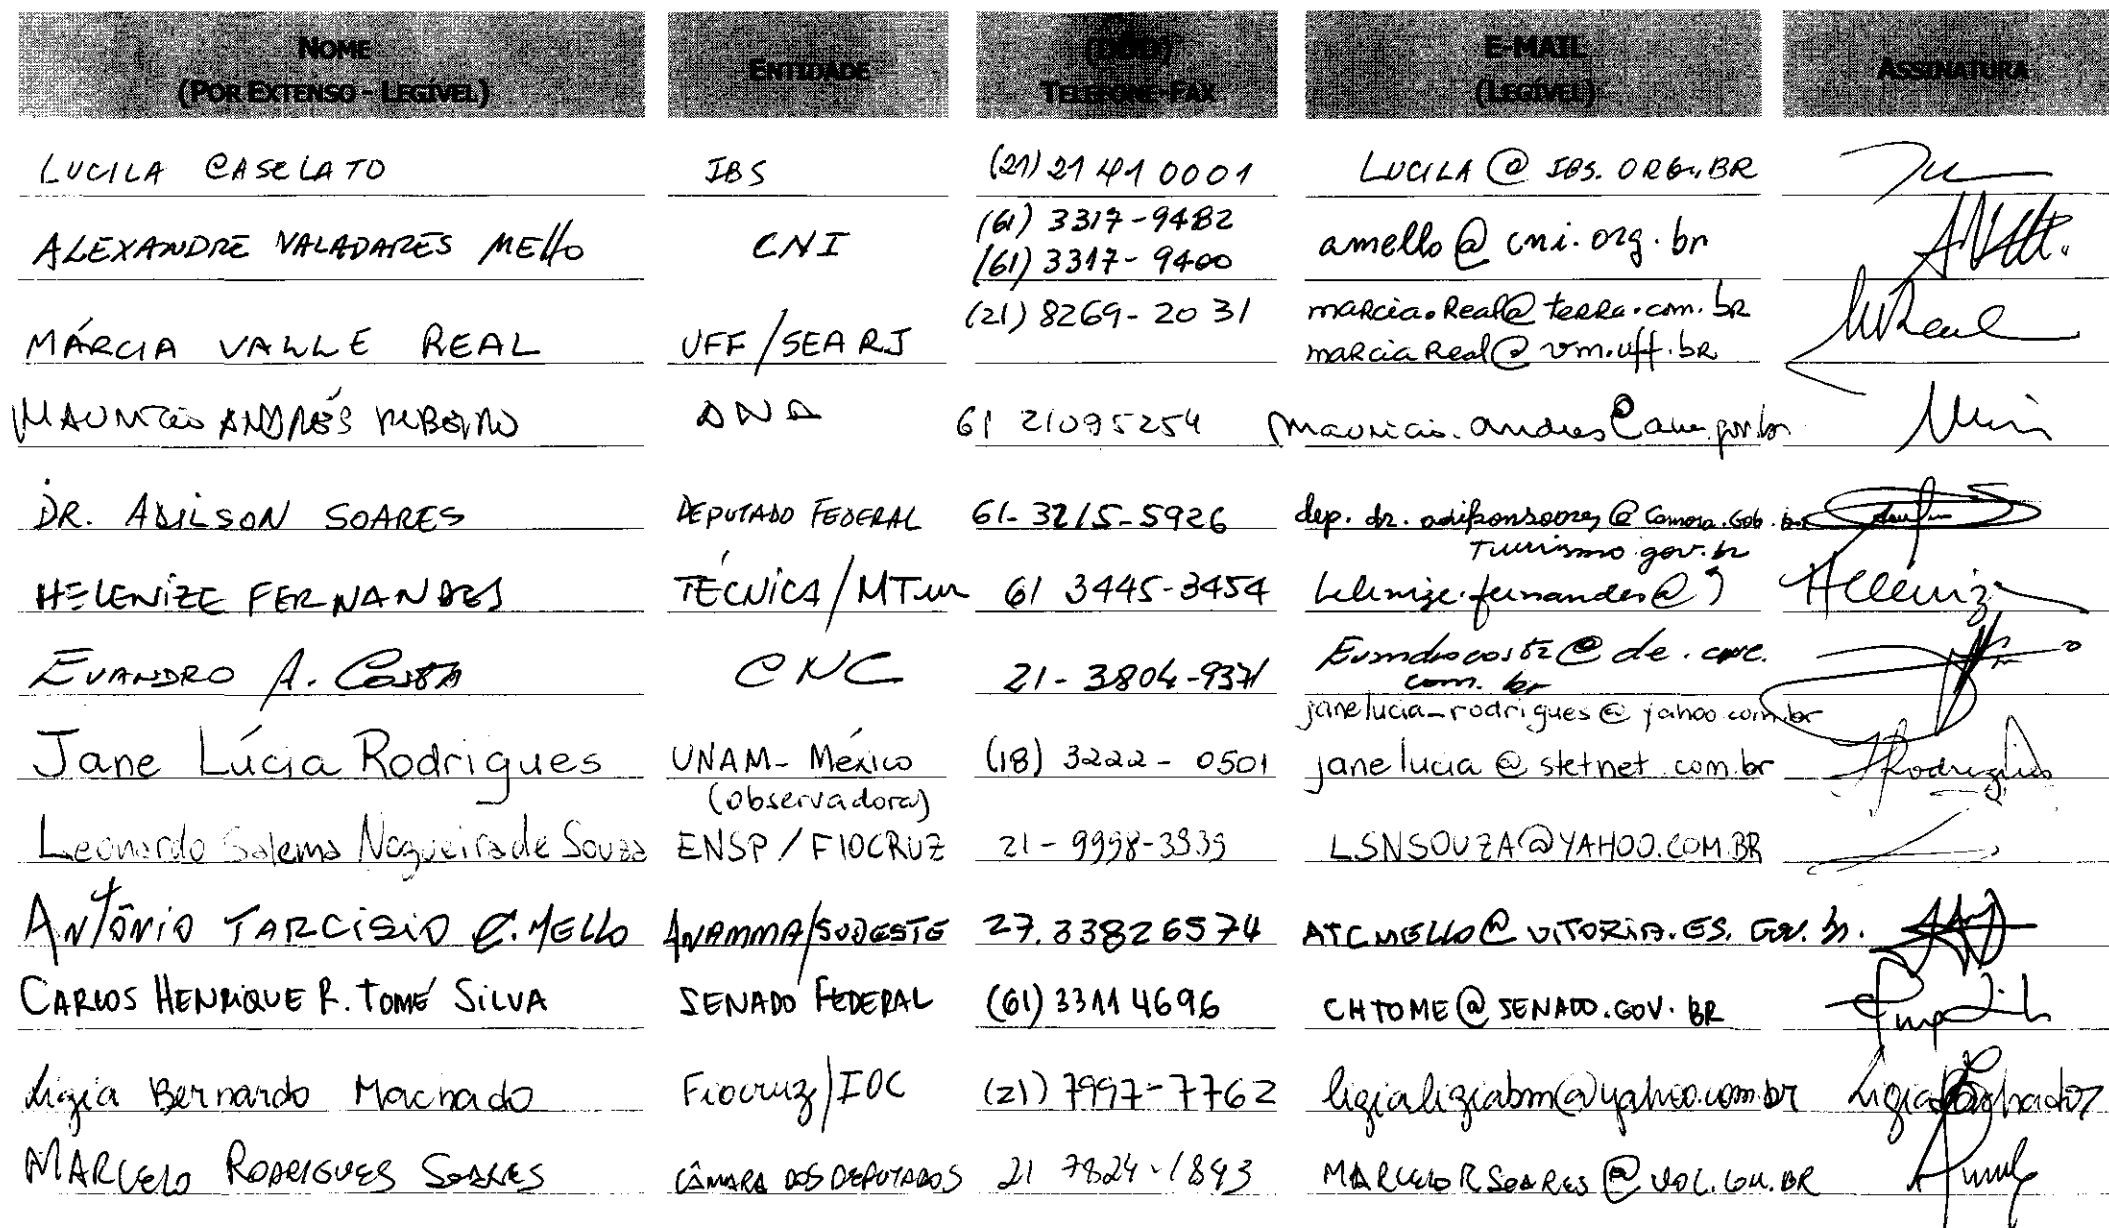 NOME
(POR EXTENSO - LEGÍVEL)
ENTIDADE
(DDD)
TELEFONE-FAX
E-MAIL
(LEGÍVEL)
ASSINATURA
LUCILA CASELATO IBS (21) 21410001 LUCILA@IBS.ORG.BR
ALEXANDRE VALADARES MELLO CNI (61) 3317-9482 amello@cni.org.br
(61) 3317-9400
MÁRCIA VALLE REAL UFF/SEARJ (21) 8269-2031 marcia.Real@terra.com.br
marciaReal@vm.uff.br
MAURICIO ANDRÉS RIBEIRO ANA 61 21095254 mauricio.andres@ana.gov.br
DR. ADILSON SOARES DEPUTADO FEDERAL 61-3215-5926 dep.dr.adilsonsoares@camara.gob.br
HELENIZE FERNANDES TÉCNICA/MTur 61 3445-3454 helenize.fernandes@
turismo.gov.br
EVANDRO A. COSTA CNC 21-3804-9371 Evandrocosta@de.cnc.
com.br
janelucia_rodrigues@yahoo.com.br
Jane Lúcia Rodrigues UNAM-México (18) 3222-0501 janelucia@stetnet.com.br
(observadora)
Leonardo Salema Nogueira de Souza ENSP/FIOCRUZ 21-9998-3939 LSNSOUZA@YAHOO.COM.BR
ANTÔNIO TARCÍSIO C. MELLO ANAMMA/SUDESTE 27.33826574 ATCMELLO@VITORIA.ES.GOV.br.
CARLOS HENRIQUE R. TOMÉ SILVA SENADO FEDERAL (61) 33114696 CHTOME@SENADO.GOV.BR
Ligia Bernardo Machado Fiocruz/IOC (21) 7997-7762 ligialigiabm@yahoo.com.br
MARCELO RODRIGUES SOARES CÂMARA DOS DEPUTADOS 21 7824-1893 MARCELORSOARES@UOL.COM.BR